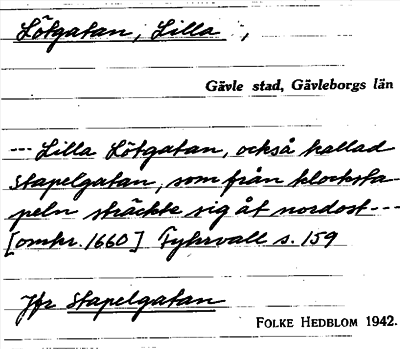 Lötgatan, Lilla ;
Gävle stad, Gävleborgs län
--- Lilla Lötgatan, också kallad
Stapelgatan, som från klocksta-
peln sträckte sig åt nordost ---
[omkr. 1660] Fyhrvall s. 159
Jfr Stapelgatan
FOLKE HEDBLOM 1942.